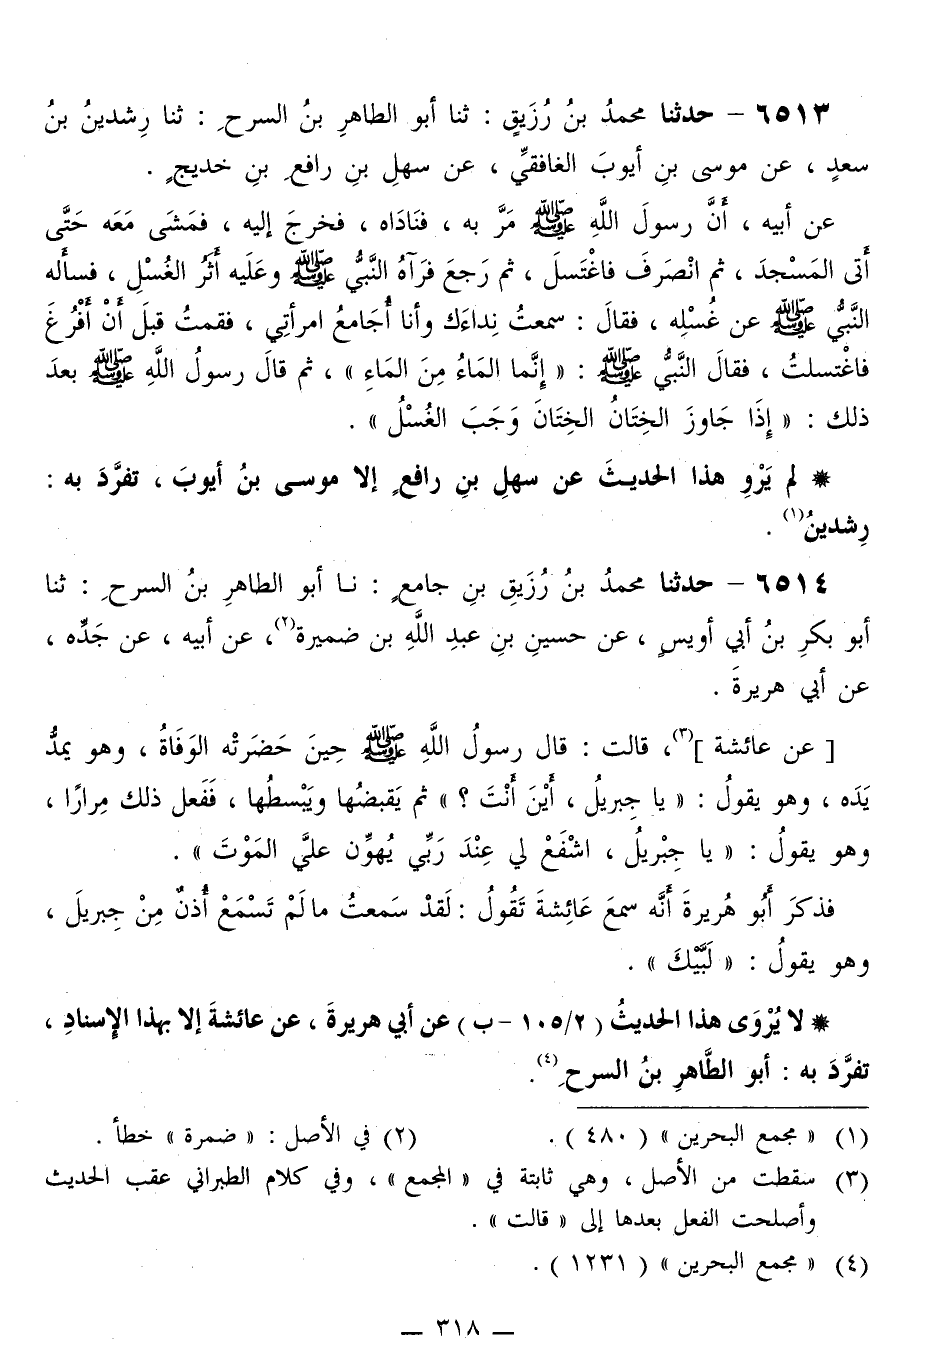 ٦٥١٣ - حدثنا محمدُ بنُ رُزَيقٍ : ثنا أبو الطاهرِ بنُ السرحِ : ثنا رِشدينُ بنُ
سعدٍ ، عن موسى بنِ أيوبَ الغافقيِّ ، عن سهلِ بنِ رافعِ بنِ خديجٍ .
عن أبيه ، أَنَّ رسولَ اللَّهِ ﷺ مَرَّ به ، فنَادَاه ، فخرجَ إليه ، فمَشَى مَعَه حَتَّى
أَتى المَسْجدَ ، ثم انْصَرَفَ فاغْتَسلَ ، ثم رَجعَ فرَآهُ النَّبيُّ ﷺ وعَلَيه أَثَرُ الغُسْلِ ، فسأَله
النَّبيُّ ﷺ عن غُسْلِه ، فقالَ : سمعتُ نِداءَك وأنا أُجَامعُ امرأتِي ، فقمتُ قبلَ أَنْ أَفْرُغَ
فاغْتسلتُ ، فقالَ النَّبيُّ ﷺ : « إِنَّما المَاءُ مِنَ المَاءِ » ، ثم قالَ رسولُ اللَّهِ ﷺ بعدَ
ذلك : « إِذَا جَاوزَ الخِتَانُ الخِتَانَ وَجَبَ الغُسْلُ » .
* لم يَرْوِ هذا الحديثَ عن سهلِ بنِ رافعٍ إلا موسى بنُ أيوبَ ، تفرَّدَ به :
رِشدينُ(١) .
٦٥١٤ - حدثنا محمدُ بنُ رُزَيقِ بنِ جامعٍ : نا أبو الطاهرِ بنُ السرحِ : ثنا
أبو بكرِ بنُ أبي أويسٍ ، عن حسينِ بنِ عبدِ اللَّهِ بن ضميرة(٢)، عن أبيه ، عن جَدِّه ،
عن أبي هريرةَ .
[ عن عائشة ](٣)، قالت : قال رسولُ اللَّهِ ﷺ حِينَ حَضَرَتْه الوَفَاةُ ، وهو يمدُّ
يَدَه ، وهو يقولُ : « يا جِبريلُ ، أَيْنَ أَنْتَ ؟ » ثم يَقبضُها ويَبْسطُها ، فَفَعل ذلك مِرارًا ،
وهو يقولُ : « يا جِبْريلُ ، اشْفَعْ لي عِنْدَ رَبِّي يُهوِّن عليَّ المَوْتَ » .
فذكرَ أَبُو هُريرةَ أَنَّه سمعَ عَائِشةَ تَقُولُ : لَقدْ سَمعتُ مالَمْ تَسْمَعْ أُذنٌ مِنْ جِبريلَ ،
وهو يقولُ : « لَبَّيْكَ » .
* لا يُرْوَى هذا الحديثُ ( ٢/ ١٠٥ - ب ) عن أبي هريرةَ ، عن عائشةَ إلا بهذا الإسنادِ ،
تفرَّدَ به : أبو الطَّاهرِ بنُ السرحِ(٤).
(١) « مجمع البحرين » ( ٤٨٠ ) . (٢) في الأصل : « ضمرة » خطأ .
(٣) سقطت من الأصل ، وهي ثابتة في « المجمع » ، وفي كلام الطبراني عقب الحديث
وأصلحت الفعل بعدها إلى « قالت » .
(٤) « مجمع البحرين » ( ١٢٣١ ) .
ـ ٣١٨ ـ